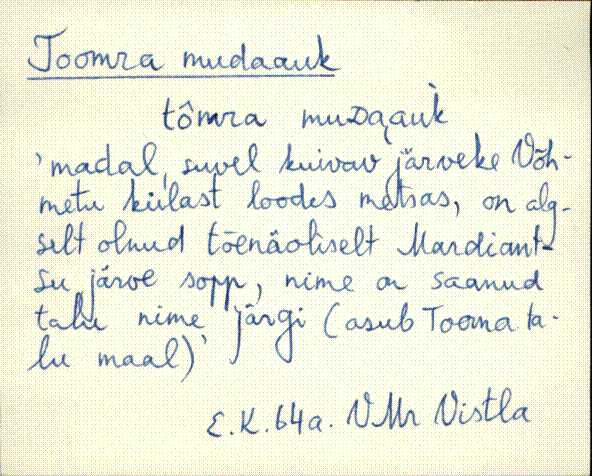 Toomra mudaauk
tômra muᴅa̭auk̀
'madal, suvel kuivav järveke Võh-
metu külast loodes metsas, on alg-
selt olnud tõenäoliselt Mardiant-
su järve sopp, nime on saanud
talu nime järgi (asub Tooma ta-
lu maal)'
E.K. 64a. VMr Vistla